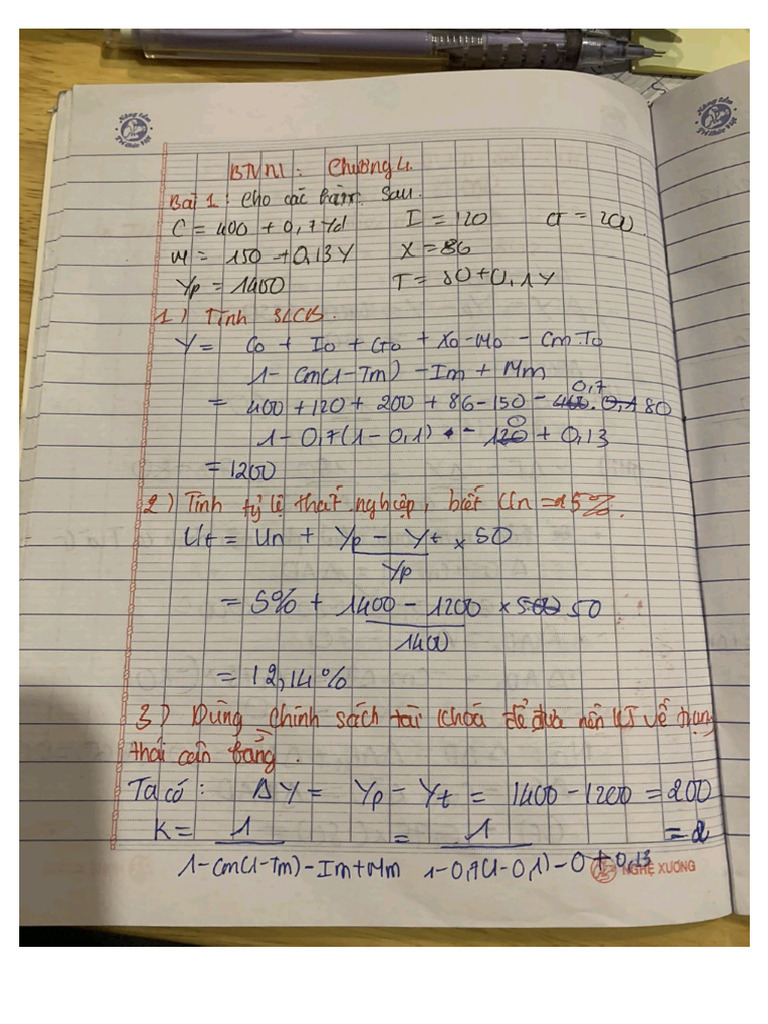 Nâng tầm Tri thức Việt
BTVN : Chương 4.
Bài 1 : Cho các hàm sau.
C = 400 + 0,7Yd I = 120 G = 200
M = 150 + 0,13Y X = 86
Yp = 1400 T = 80 + 0,1Y
1) Tính SLCB.
Y = Co + Io + Go + Xo - Mo - Cm.To
1 - Cm(1 - Tm) - Im + Mm
0,7
= 400 + 120 + 200 + 86 - 150 - 80
1 - 0,7(1 - 0,1) - 0 + 0,13
= 1200
2) Tính tỷ lệ thất nghiệp, biết Un = 5%.
Ut = Un + Yp - Yt × 50
Yp
= 5% + 1400 - 1200 × 50
1400
= 12,14%
3) Dùng chính sách tài khoá để đưa nền KT về trạng
thái cân bằng.
Ta có : ΔY = Yp - Yt = 1400 - 1200 = 200
K = 1 = 1 = 2
1 - Cm(1 - Tm) - Im + Mm 1 - 0,7(1 - 0,1) - 0 + 0,13
NGHỆ XƯƠNG